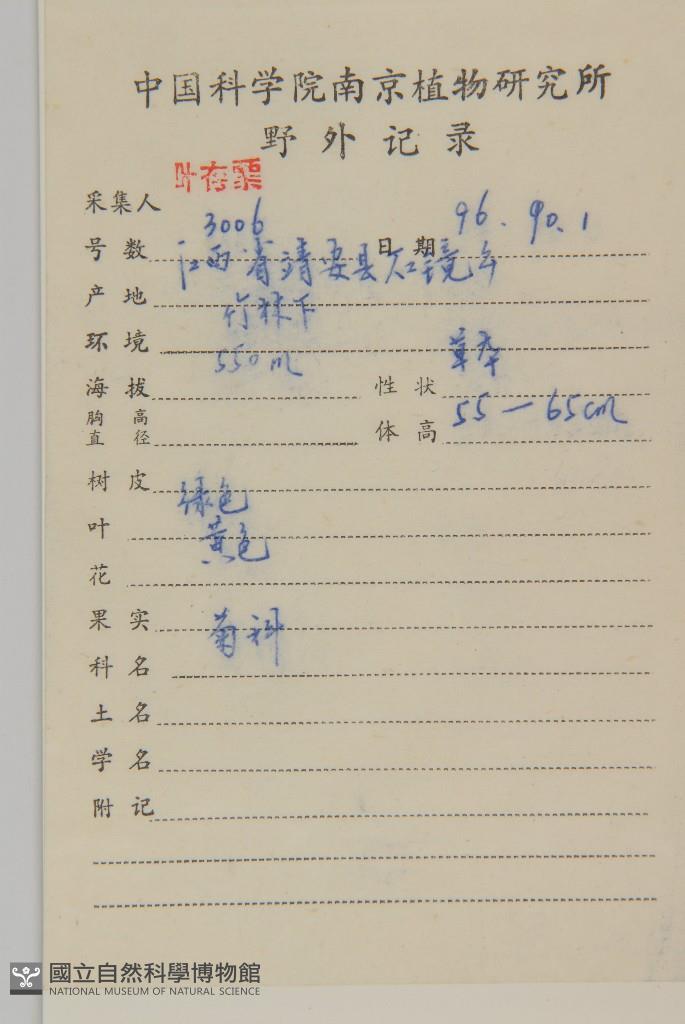 中国科学院南京植物研究所
野外记录
采集人 叶存粟
号数 3006 日期 96.90.1
产地 江西省靖安县石境乡
环境 竹林下
海拔 550m 性状 草本
胸高直径 体高 55—65cm
树皮
叶 绿色
花 黄色
果实
科名 菊科
土名
学名
附记
國立自然科學博物館
NATIONAL MUSEUM OF NATURAL SCIENCE